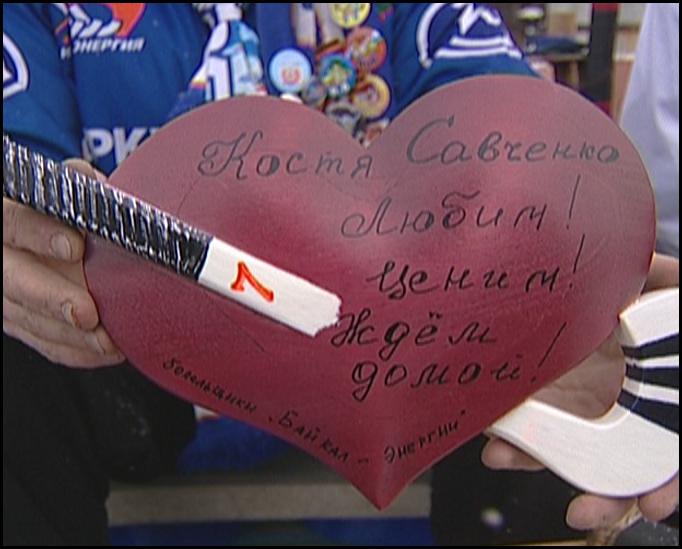 ЭНЕРГИЯ
РКУ
Костя Савченко
Любим!
Ценим!
7
Ждём
домой!
болельщики „Байкал-Энергии"